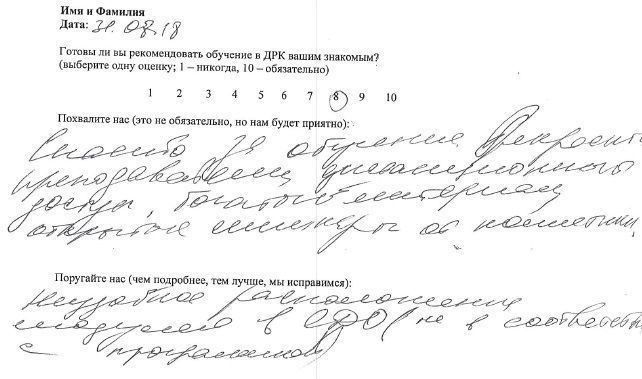 Имя и Фамилия
Дата: 31.08.18
Готовы ли вы рекомендовать обучение в ДРК вашим знакомым?
(выберите одну оценку; 1 – никогда, 10 – обязательно)
1 2 3 4 5 6 7 8 9 10
Похвалите нас (это не обязательно, но нам будет приятно):
Спасибо за обучение. Прекрасн
преподаватели, дистанционного
доступ, богатый материал,
открытые семинары
Поругайте нас (чем подробнее, тем лучше, мы исправимся):
Неудобное расположение
модулей в СДО (не в соответств
с программой)